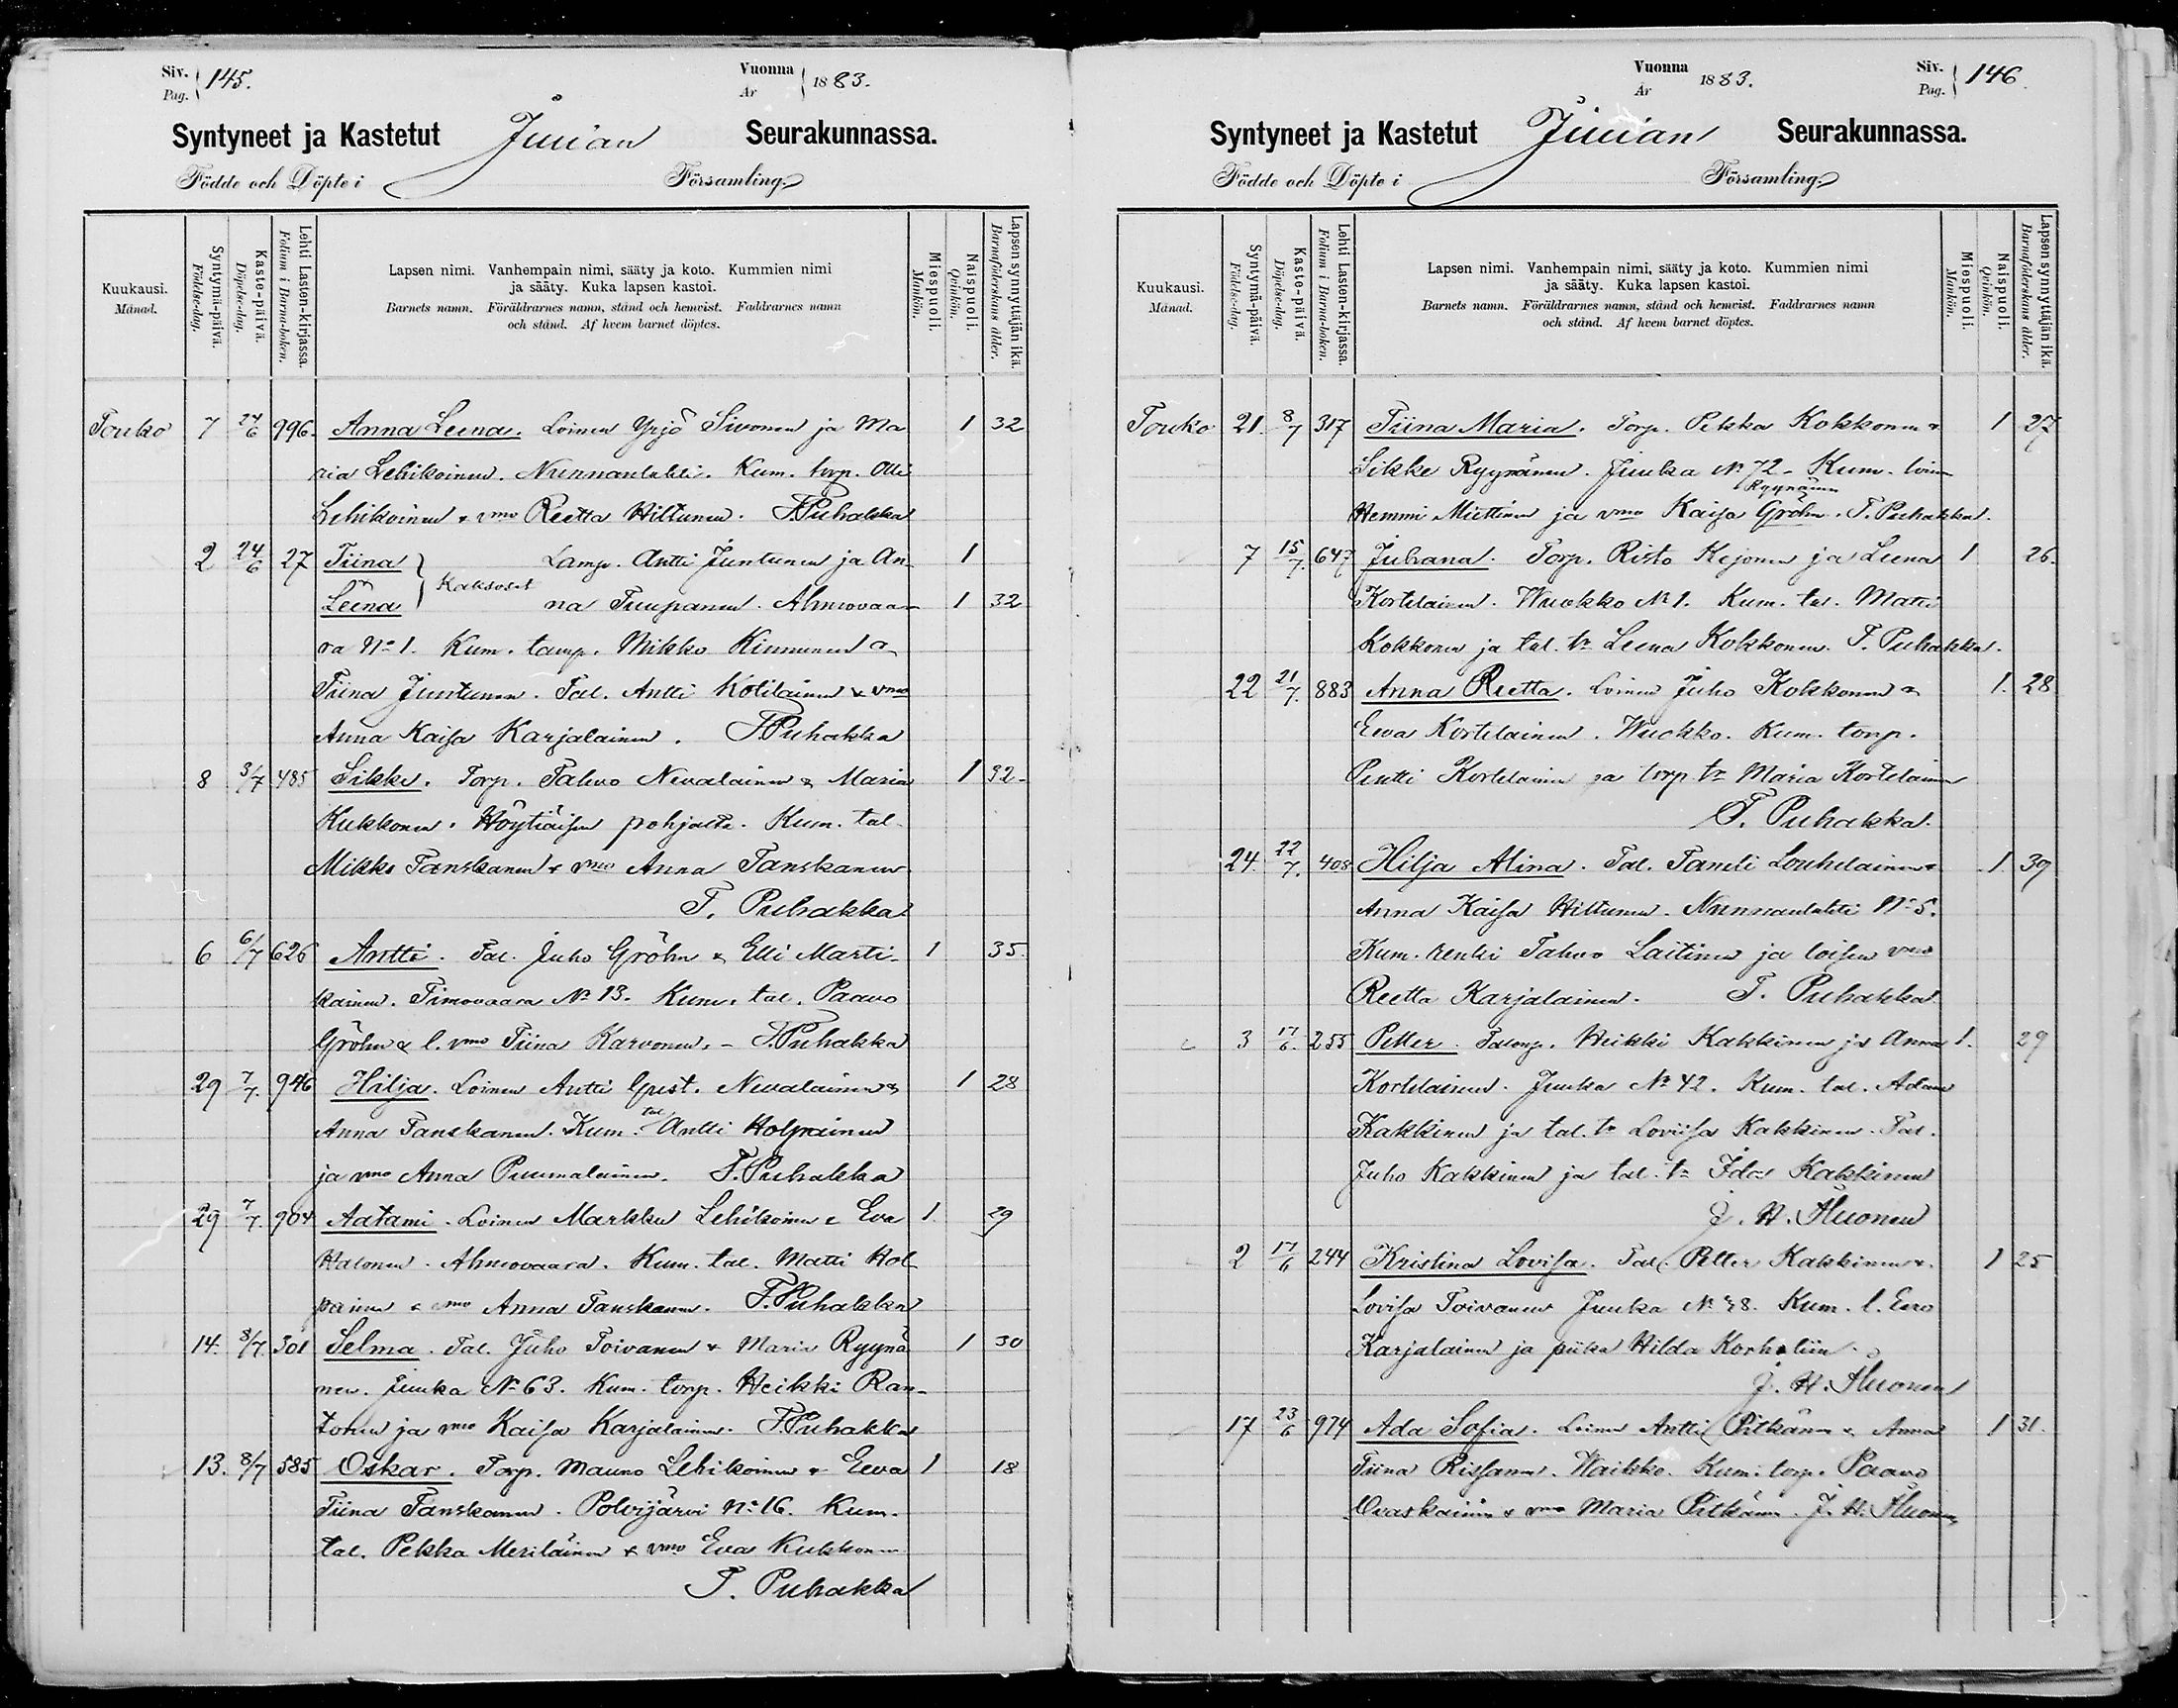 Siv. Pag. 145.
Vuonna År 1883.
Syntyneet ja Kastetut Juuan Seurakunnassa.
Födde och Döpte i Församling.
Kuukausi. Månad.
Syntymä-päivä. Födelse-dag.
Kaste-päivä. Döpelse-dag.
Lehti Lasten-kirjassa. Folium i Barna-boken.
Lapsen nimi. Vanhempain nimi, sääty ja koto. Kummien nimi
ja sääty. Kuka lapsen kastoi.
Barnets namn. Föräldrarnes namn, stånd och hemvist. Faddrarnes namn
och stånd. Af hvem barnet döptes.
Miespuoli. Mankön.
Naispuoli. Qvinkön.
Lapsen synnyttäjän ikä. Barnaföderskans ålder.
Touko 7 24/6 996. Anna Leena. Loinen Yrjö Sivonen ja Ma 1 32
ria Lehikoinen. Nunnanlahti. Kum. torp. Olli
Lehikoinen & vmo Reetta Hiltunen. T. Puhakka
2 24/6 27 Tiina Lamp. Antti Juntunen ja An 1
Leena Kaksoset na Tuupanen. Ahmovaa- 1 32
ra No 1. Kum. lamp. Mikko Kinnunen &
Tiina Juntunen. Tal. Antti Kotilainen & vmo
Anna Kaisa Karjalainen. T. Puhakka
8 3/7 485 Sikke. Torp. Tahvo Nevalainen & Maria 1 32
Kukkonen. Höytiäisen pohjalta. Kum. tal.
Mikko Tanskanen & vmo Anna Tanskanen
T. Puhakka
6 6/7 626 Antti. Tal. Juho Gröhn & Elli Marti- 1 35.
kainen. Timovaara No 13. Kum. tal. Paavo
Gröhn & l. vmo Tiina Karvonen. - T. Puhakka
29 7/7. 946 Hilja. Loinen Antti Gust. Nevalainen & 1 28
Anna Tanskanen. Kum. tal. Antti Holpainen
ja vmo Anna Puumalainen. T. Puhakka
29 7/7. 904 Aatami. Loinen Markku Lehikoinen & Eva 1 29
Halonen. Ahmovaara. Kum. tal. Matti Hol
painen & vmo Anna Tanskanen. T. Puhakka
14. 8/7. 301 Selma. Tal. Juho Toivanen & Maria Ryynä 1 30
nen. Juuka No 63. Kum. torp. Heikki Ran-
tonen ja vmo Kaisa Karjalainen. T. Puhakka
13. 8/7 585 Oskar. Torp. Mauno Lehikoinen & Eeva 1 18
Tiina Tanskanen. Polvijärvi No 16. Kum.
tal. Pekka Meriläinen & vmo Eva Kukkonen
T. Puhakka
Vuonna År 1883.
Siv. Pag. 146.
Syntyneet ja Kastetut Juuan Seurakunnassa.
Födde och Döpte i Församling.
Kuukausi. Månad.
Syntymä-päivä. Födelse-dag.
Kaste-päivä. Döpelse-dag.
Lehti Lasten-kirjassa. Folium i Barna-boken.
Lapsen nimi. Vanhempain nimi, sääty ja koto. Kummien nimi
ja sääty. Kuka lapsen kastoi.
Barnets namn. Föräldrarnes namn, stånd och hemvist. Faddrarnes namn
och stånd. Af hvem barnet döptes.
Miespuoli. Mankön.
Naispuoli. Qvinkön.
Lapsen synnyttäjän ikä. Barnaföderskans ålder.
Touko 21. 8/7 317 Tiina Maria. Torp. Pekka Kokkonen & 1 27
Sikke Ryynänen. Juuka No 72. Kum. loinen
Ryynänen
Hemmi Miettinen ja vmo Kaisa Gröhn. T. Puhakka.
7 15/7. 647 Juhana. Torp. Risto Kejonen ja Leena 1 26.
Kortelainen. Wuokko No 1. Kum. tal. Matti
Kokkonen ja tal. tr Leena Kokkonen. T. Puhakka.
22 21/7. 883 Anna Reetta. Loinen Juho Kokkonen & 1. 28
Eva Kortelainen. Wuokko. Kum. torp.
Pentti Kortelainen ja torp tr Maria Kortelainen
T. Puhakka.
24. 22/7. 408 Hilja Alina. Tal. Taneli Louhelainen & 1. 39
Anna Kaisa Hiltunen. Nunnanlahti No 5.
Kum. renki Tahvo Laitinen ja loisen vmo
Reetta Karjalainen. T. Puhakka.
3 17/6. 255 Petter. Talonp. Heikki Kakkinen ja Anna 1. 29
Kortelainen. Juuka No 42. Kum. tal. Adam
Kakkinen ja tal. tr Loviisa Kakkinen. Tal.
Juho Kakkinen ja tal. tr Ida Kakkinen
J. H. Åluonen
2 17/6 244 Kristina Lovisa. Tal. Petter Kakkinen & 1 25
Lovisa Toivanen Juuka No 38. Kum. l. Eero
Karjalainen ja piika Hilda
17 23/6 974 Ada Sofia. Loinen Antti Pitkänen & Anna 1 31.
Tiina Rissanen. Waikko. Kum. torp. Paavo
Ovaskainen & vmo Maria Pitkänen.